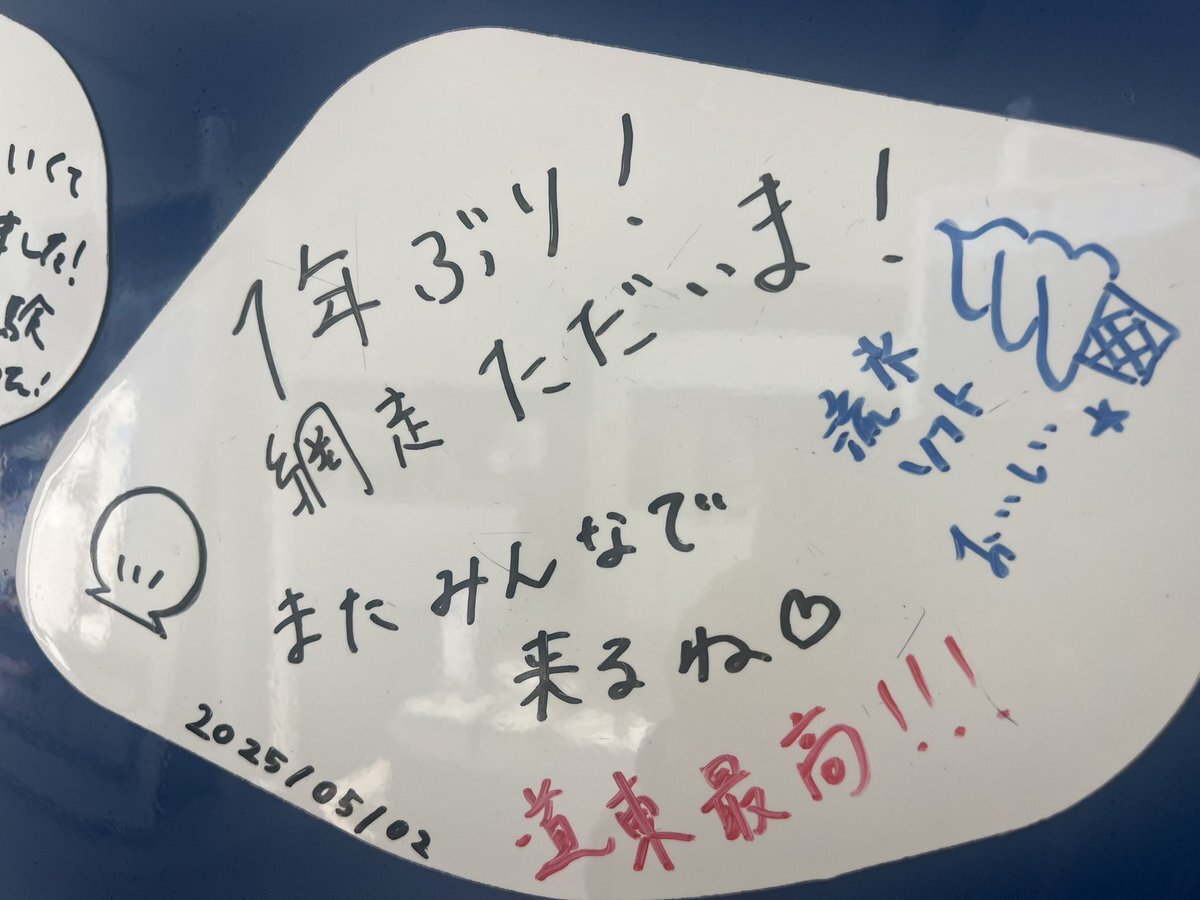 いくて
ました!
験
1年ぶり!
網走ただいま!
またみんなで
来るね♡
流氷
ソフト
おいしい
★
道東最高!!!
2025/05/02